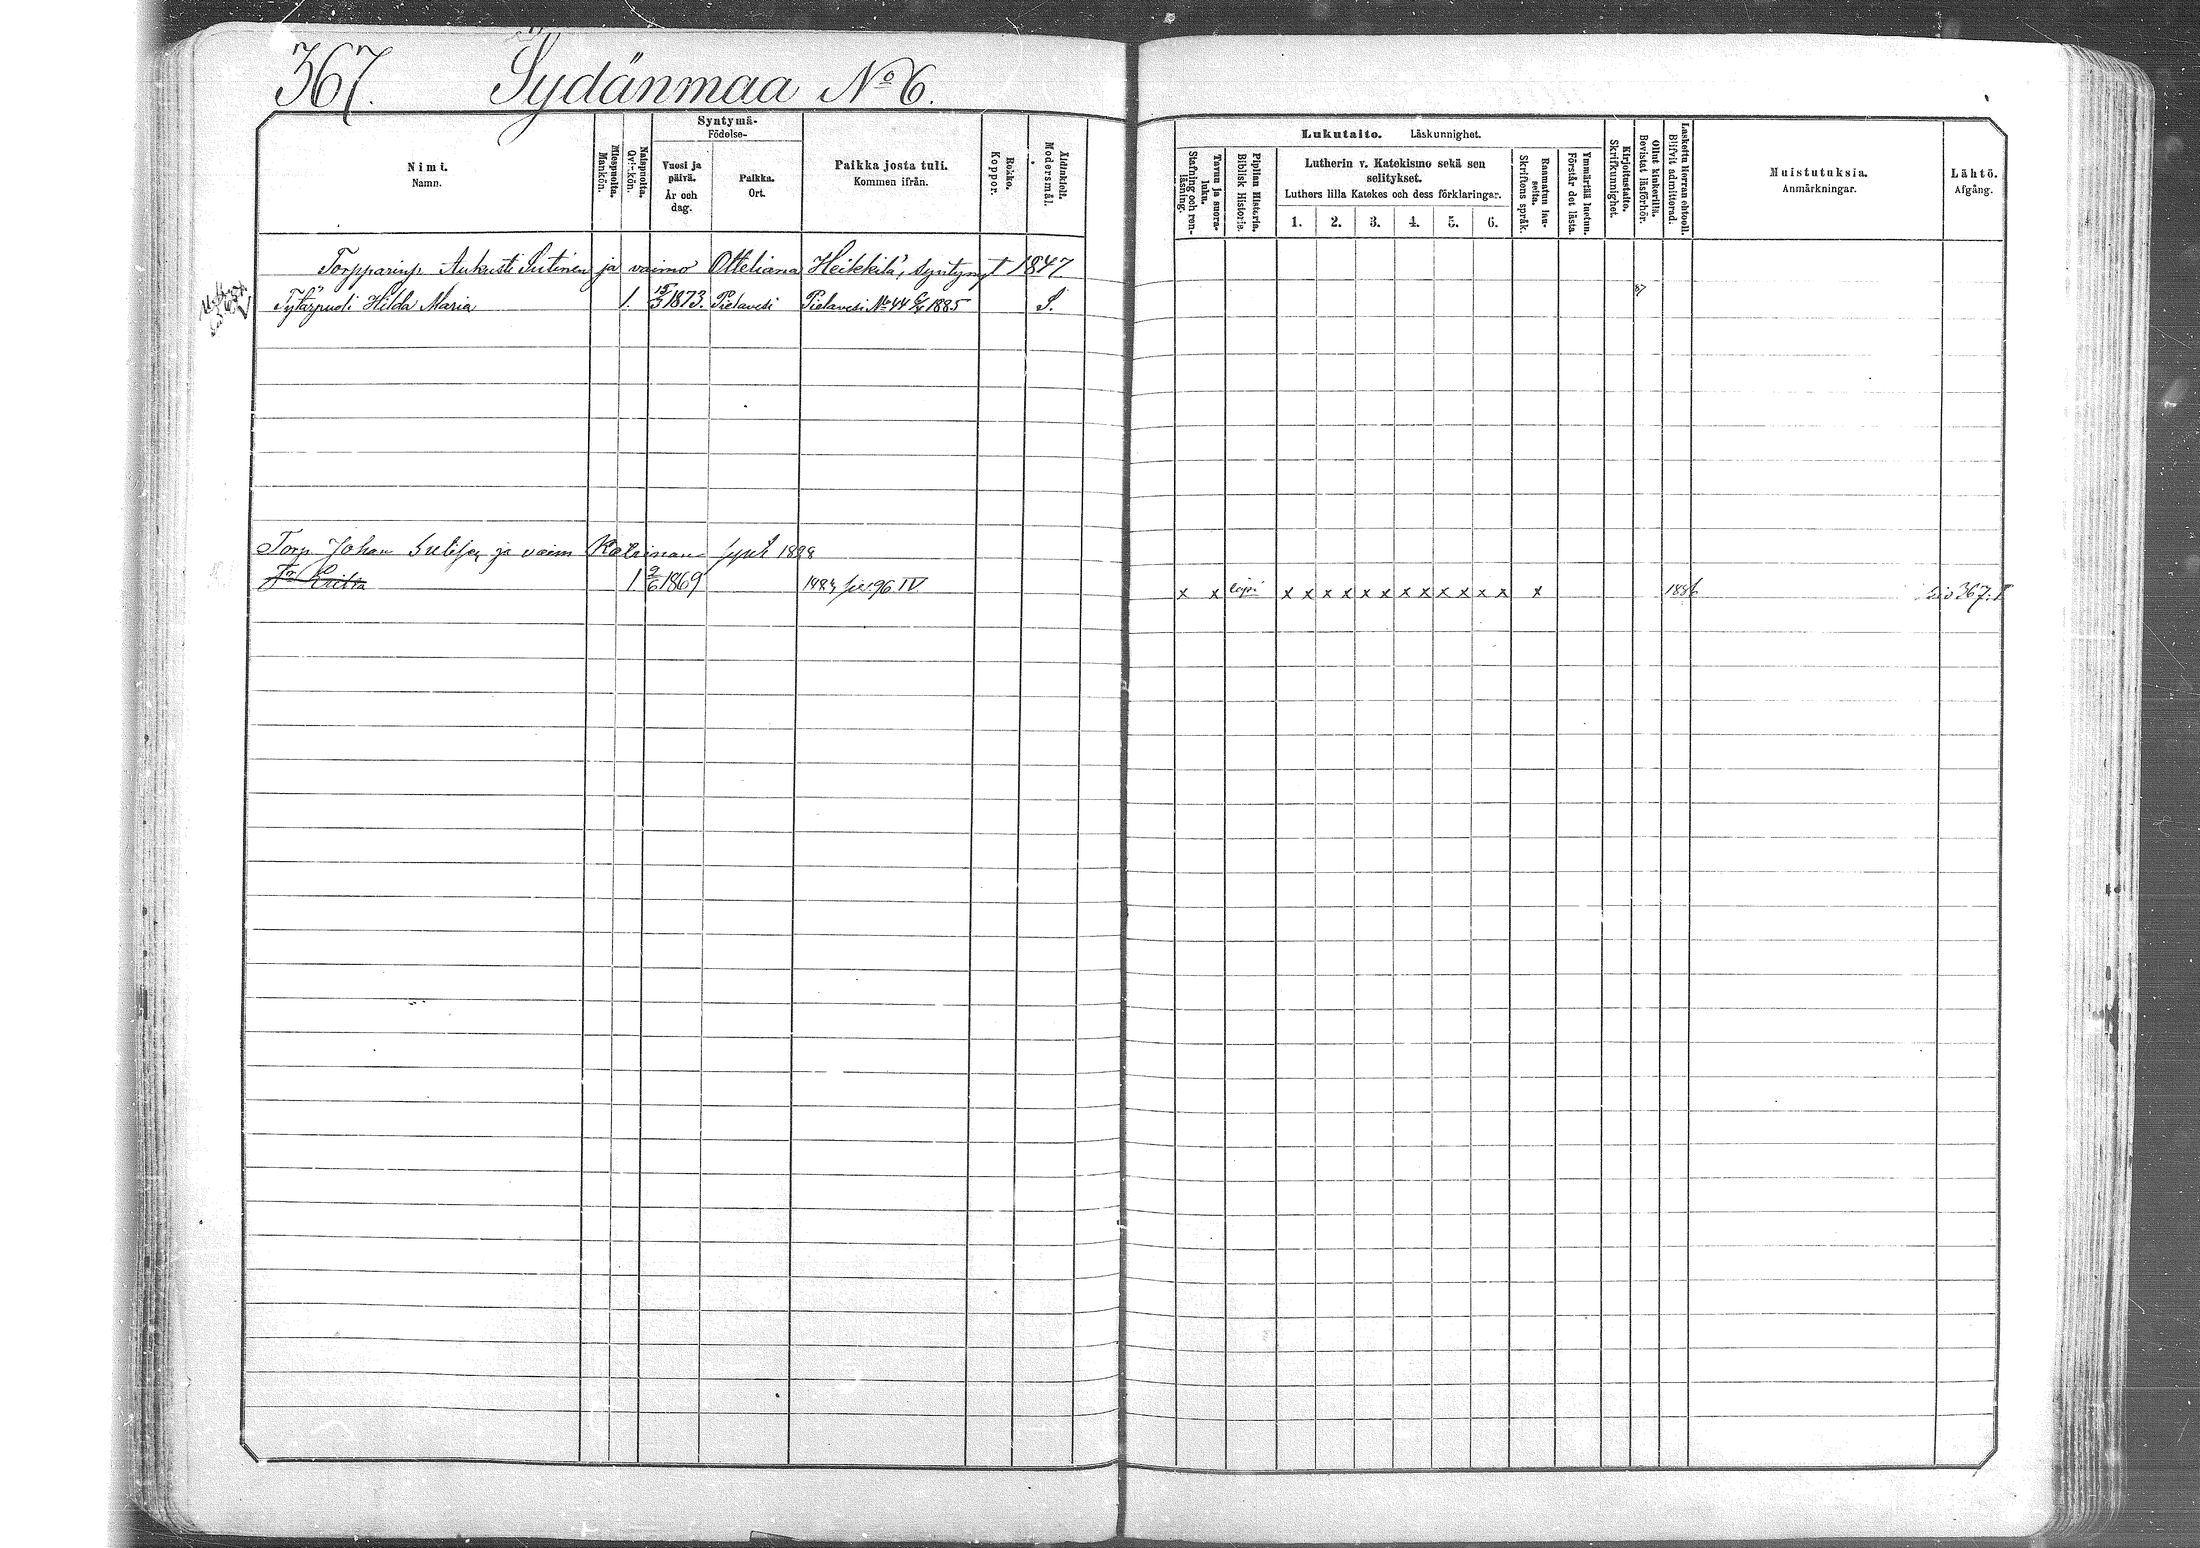 367. Sydänmaa No 6.
Nimi.
Namn.
Miespuolta.
Mankön.
Naispuolta.
Qv:r-kön.
Syntymä-
Födelse-
Vuosi ja
päivä.
År och
dag.
Paikka.
Ort.
Paikka josta tuli.
Kommen ifrån.
Rokko.
Koppor.
Äidinkieli.
Modersmål.
Torpparinp. Aukusti Sutinen ja vaimo Otteliana Heikkilä, syntynyt 1847
Tytärpuoli Hilda Maria 1. 15/3 1873. Pielavesi Pielavesi No 44 1885 S.
Torp. Johan ja vaim Katrinan 
1. 9/6 1869 96 IV
Lukutaito. Läskunnighet.
Tavuu ja suora-
luku.
Stafning och ren-
läsning.
Piplian Historia.
Biblisk Historie.
Lutherin v. Katekismo sekä sen
selitykset.
Luthers lilla Katekes och dess förklaringar.
1. 2. 3. 4. 5. 6.
Raamatun lau-
seita.
Skriftens språk.
Ymmärtää luetun.
Förstår det lästa.
Kirjoitustaito.
Skrifkunnighet.
Ollut kinkerillä.
Bevistat läsförhör.
Laskettu Herran ehtooll.
Blifvit admitterad.
Muistutuksia.
Anmärkningar.
Lähtö.
Afgång.
87
x x x x x x x x x x x x x x x 1886 siv 367: II